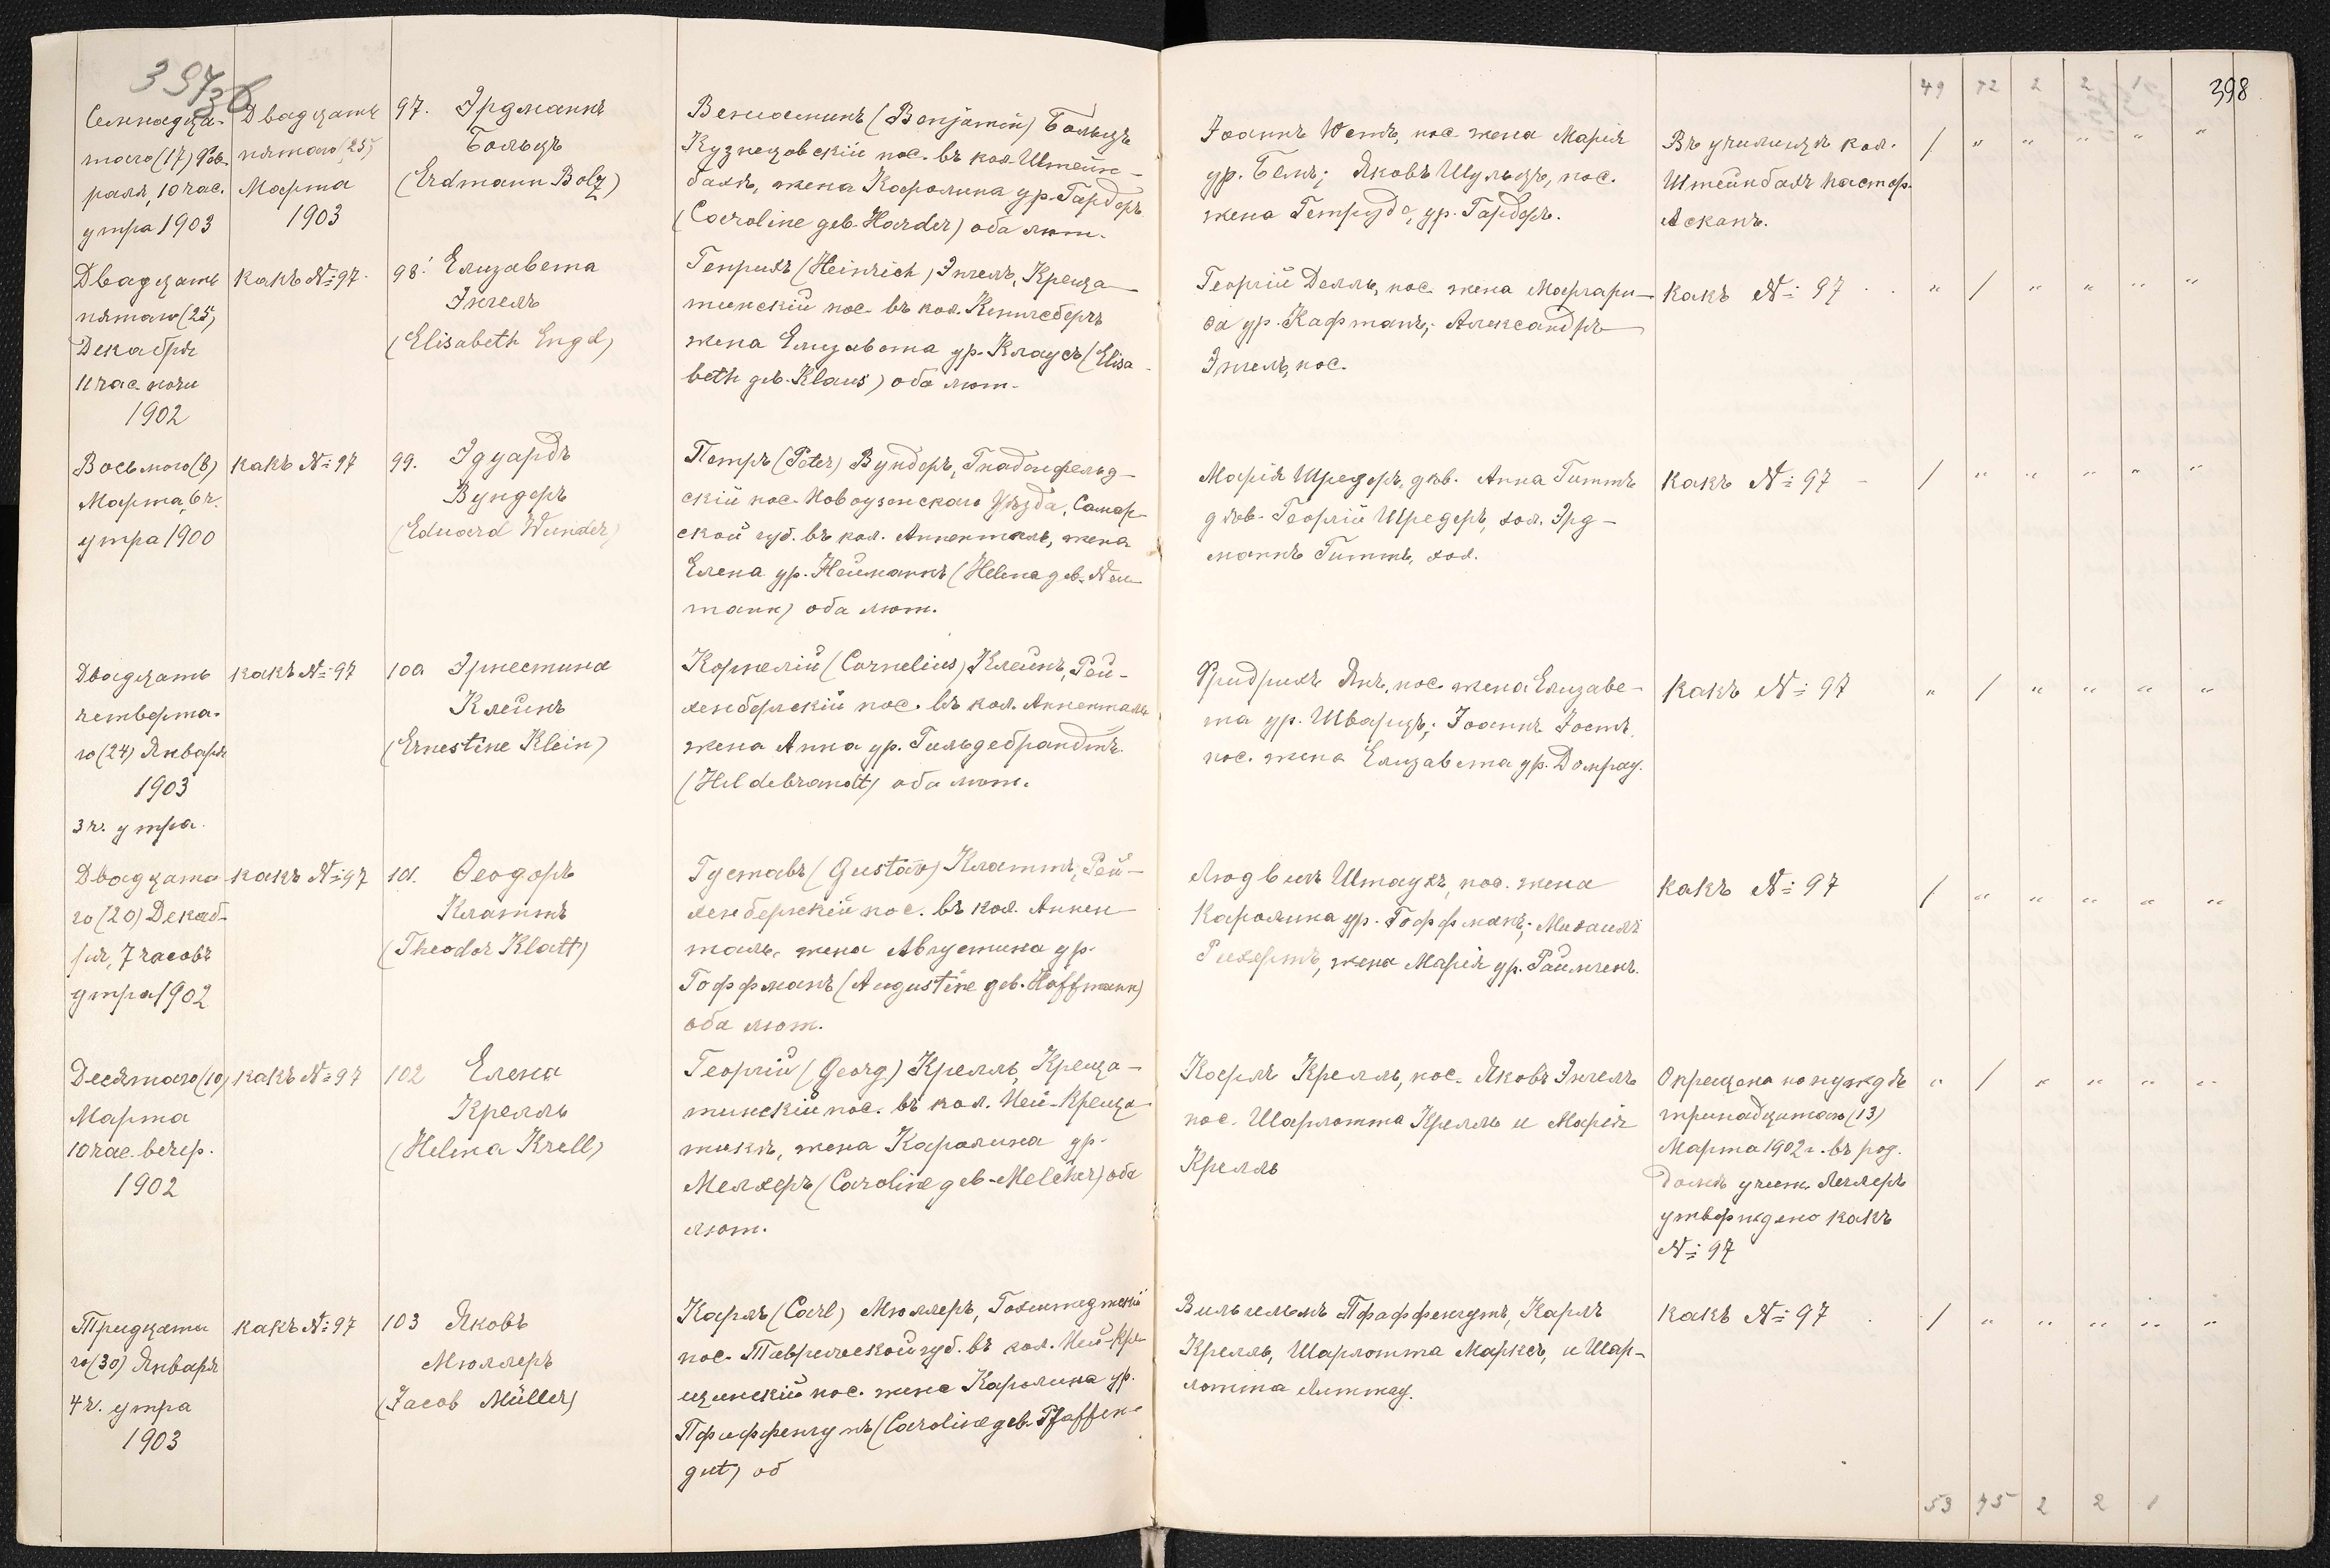 397 об
398
49 72 2 2 1
Семнадца-
таго (17) Фев
раля, 10 час.
утра 1903
Двадцать
пятаго (25)
Марта
1903
97. Эрдманнъ
Больцъ
(Erdmann Bolz)
Веніаминъ (Benjamin) Больцъ
Кузнецовскій пос. въ кол. Штейн-
бахъ, жена Каролина ур. Гардеръ
(Caroline geb. Harder) оба лют.
Іоаннъ пос. жена Марія
ур. Бенъ; Яковъ Шульцъ, пос.
жена Гетруда, ур. Гардеръ.
Въ училищѣ кол.
Штейнбахъ пастор.
Асканъ.
/ " " " " "
Двадцать
пятаго (25)
Декабря
11 час. ночи
1902
какъ №97.
98. Елизавета
Энгель
(Elisabeth Engel)
Генрихъ (Heinrich) Энгель, Креща-
тинскій пос. въ кол. Кенигсбергъ
жена Елизавета ур. Клаусъ (Elisa
beth geb. Klaus) оба лют.
Георгій Делль, пос. жена Маргари-
са ур. Кафтанъ; Александръ
Энгель, пос.
какъ №97
" / " " " "
Восьмого (8)
Марта, 6 ч.
утра 1900
какъ №97
99. Эдуардъ
Вундеръ
(Eduard Wunder)
Петръ (Peter) Вундеръ, Гнаденфельд-
скій пос. Новоузенскаго Уѣзда, Самар-
ской губ. въ кол. Анненталь, жена
Елена ур. Нейманнъ (Helena geb. Neu
mann) оба лют.
Марія Шредеръ, дѣв. Анна Тиммъ
дѣв. Георгій Шредеръ, хол. Эрд-
маннъ Тиммъ, хол.
какъ №97
/ " " " " "
Двадцать
четверта-
го (24) Января
1903
3 ч. утра.
какъ №97
100 Эрнестина
Клейнъ
(Ernestine Klein)
Корнелій (Cornelius) Клейнъ, Рей-
хенбергскій пос. въ кол. Анненталь
жена Анна ур. Гильдебрандтъ.
(Hildebrandt) оба лют.
Фридрихъ Янъ, пос. жена Елизаве-
та ур. Шварцъ; Іоаннъ Іостъ,
пос. жена Елизавета ур. Домрау.
какъ №97
" / " " " "
Двадцата-
го (20) Декаб-
ря, 7 часовъ
утра 1902
какъ №97
101. Ѳеодоръ
Клаттъ
(Theodor Klatt)
Густавъ (Gustav) Клаттъ, Рей-
хенбергскій пос. въ кол. Аннен
таль, жена Августина ур.
Гоффманъ (Augustine geb. Hoffmann)
оба лют.
Людвигъ Штаукъ, пос. жена
Каролина ур. Гоффманъ; Михаилъ
Рихертъ, жена Марія ур.
какъ №97
/ " " " " "
Десятаго (10)
Марта
10 час. вечер.
1902
какъ №97
102 Елена
Крелль
(Helena Krell)
Георгій (Georg) Крелль, Креща-
тинскій пос. въ кол. Ней-Креща
тикъ, жена Каролина ур.
Мелхеръ (Caroline geb. Melcher) оба
лют.
Карлъ Крелль, пос. Яковъ Энгель
пос. Шарлотта Крелль и Марія
Крелль
Окрещена по нуждѣ
тринадцатаго (13)
Марта 1902 г. въ род.
домѣ учит.
утверждено какъ
№97
" / " " " "
Тридцата
го (30) Января
4 ч. утра
1903
какъ №97
103 Яковъ
Мюллеръ
(Jacob Müller)
Карлъ (Carl) Мюллеръ, Гохштедтскій
пос. Таврической губ. въ кол. Ней-Кре
щинскій пос. жена Каролина ур.
Пфаффенгутъ (Caroline geb. Pfaffen-
gut) об
Вильгельмъ Пфаффенгутъ, Карлъ
Крелль, Шарлотта Марксъ, и Шар-
лотта Литтау.
какъ №97
/ " " " " "
53 75 2 2 1